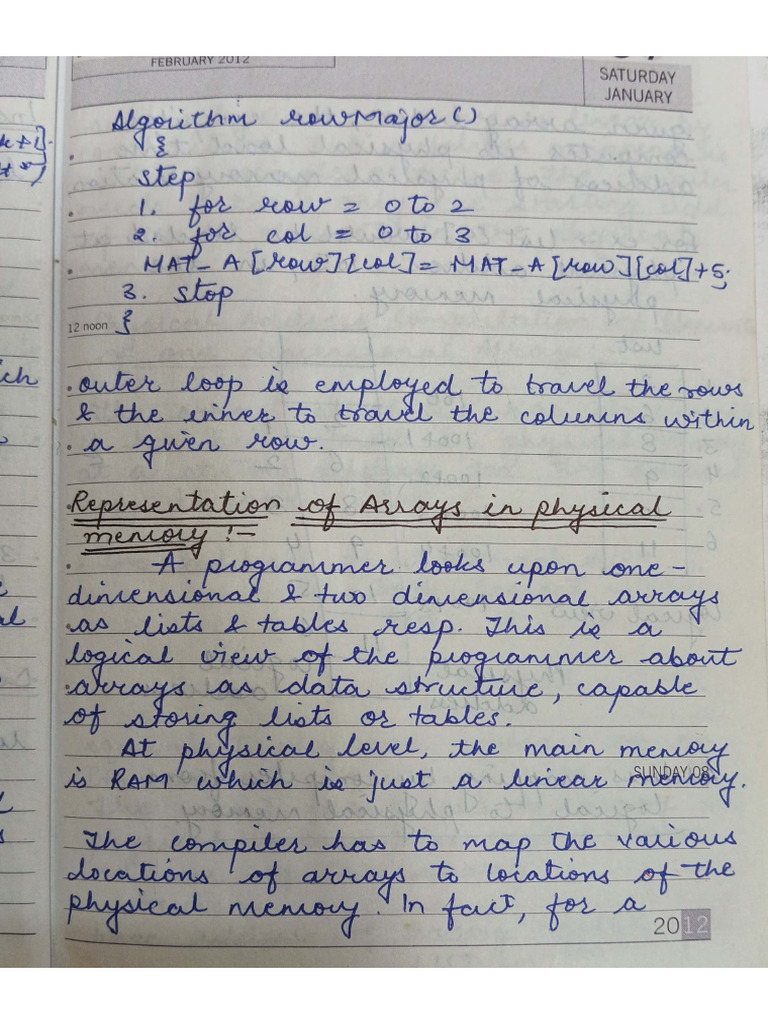 FEBRUARY 2012
SATURDAY
JANUARY
Algorithm rowMajor()
{
step
1. for row = 0 to 2
2. for col = 0 to 3
MAT_A[row][col] = MAT_A[row][col]+5;
3. stop
12 noon }
outer loop is employed to travel the rows
& the inner to travel the columns within
a given row.
Representation of Arrays in physical
memory :-
A programmer looks upon one-
dimensional & two dimensional arrays
as lists & tables resp. This is a
logical view of the programmer about
arrays as data structure, capable
of storing lists or tables.
At physical level, the main memory
is RAM which is just a linear memory.
SUNDAY 08
The compiler has to map the various
locations of arrays to locations of the
physical memory. In fact, for a
2012